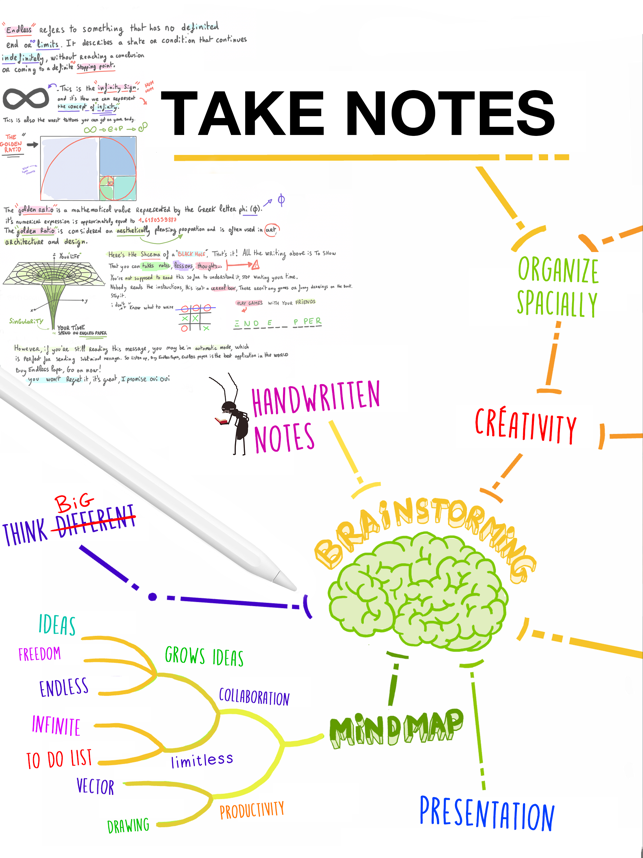 "Endless" refers to something that has no definited
end or limits. It describes a state or condition that continues
indefinitely, without reaching a conclusion
or coming to a definite stopping point.
This is the "infinity sign"
and it's how we can represent
the concept of infinity.
This is also the worst tattoos you can get on your body.
THE
GOLDEN
RATIO
The "golden ratio" is a mathematical value represented by the Greek letter phi (Φ).
Φ
it's numerical expression is approximately equal to
The golden Ratio is considered an aesthetically pleasing proportion and is often used in art
architecture and design.
Here's the Schema of a "BLACK HOLE", That's it! All the writing above is to show
that you can take notes, lessons, thoughts...
You're not supposed to read this so far to understand it, stop wasting your time.
Nobody reads the instructions, this isn't a
Stop it.
i don't know what to write
PLAY GAMES with your FRIENDS
E N D E _ _ P P E R
SiNGULARITY
YOUR TIME
SPEND ON ENDLESS PAPER
However, if you're still reading this message, you may be in automatic mode, which
is perfect for sending subliminal messages. So listen up,
Buy Endless Paper, Go on now!
you won't Regret it, it's great, I promise oui oui
TAKE NOTES
ORGANIZE
SPACIALLY
HANDWRITTEN
NOTES
CRÉATIVITY
BRAiNSTORMING
BiG
THINK DIFFERENT
IDEAS
FREEDOM
ENDLESS
GROWS IDEAS
COLLABORATION
INFINITE
TO DO LIST
limitless
MiNDMAP
VECTOR
PRODUCTIVITY
DRAWING
PRESENTATION